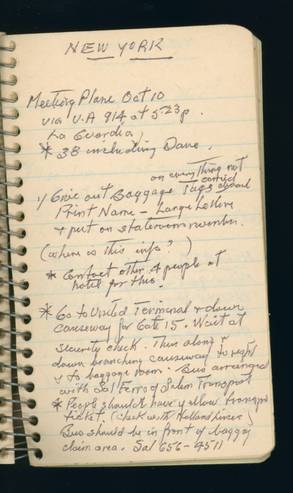 NEW YORK
Meeting Plane Oct 10
via U.A 914 at 5:23p.
La Guardia,
* 38 including Dave.
on everything not
carried
1) Give out Baggage Tags aboard
1 Print Name - Large Letters
& put on stateroom number.
(where is this info? )
* Contact other 4 people at
hotel for this.
* Go to United Terminal & down
causeway for Gate 15. Wait at
security check. Then along &
down branching causeway to right
& to baggage room. Bus arranged
with Sal Ferro of Salem Transport
* People should have yellow transport
ticket. (check with Holland Lines)
Bus should be in front of baggage
claim area. Sal 656-4511